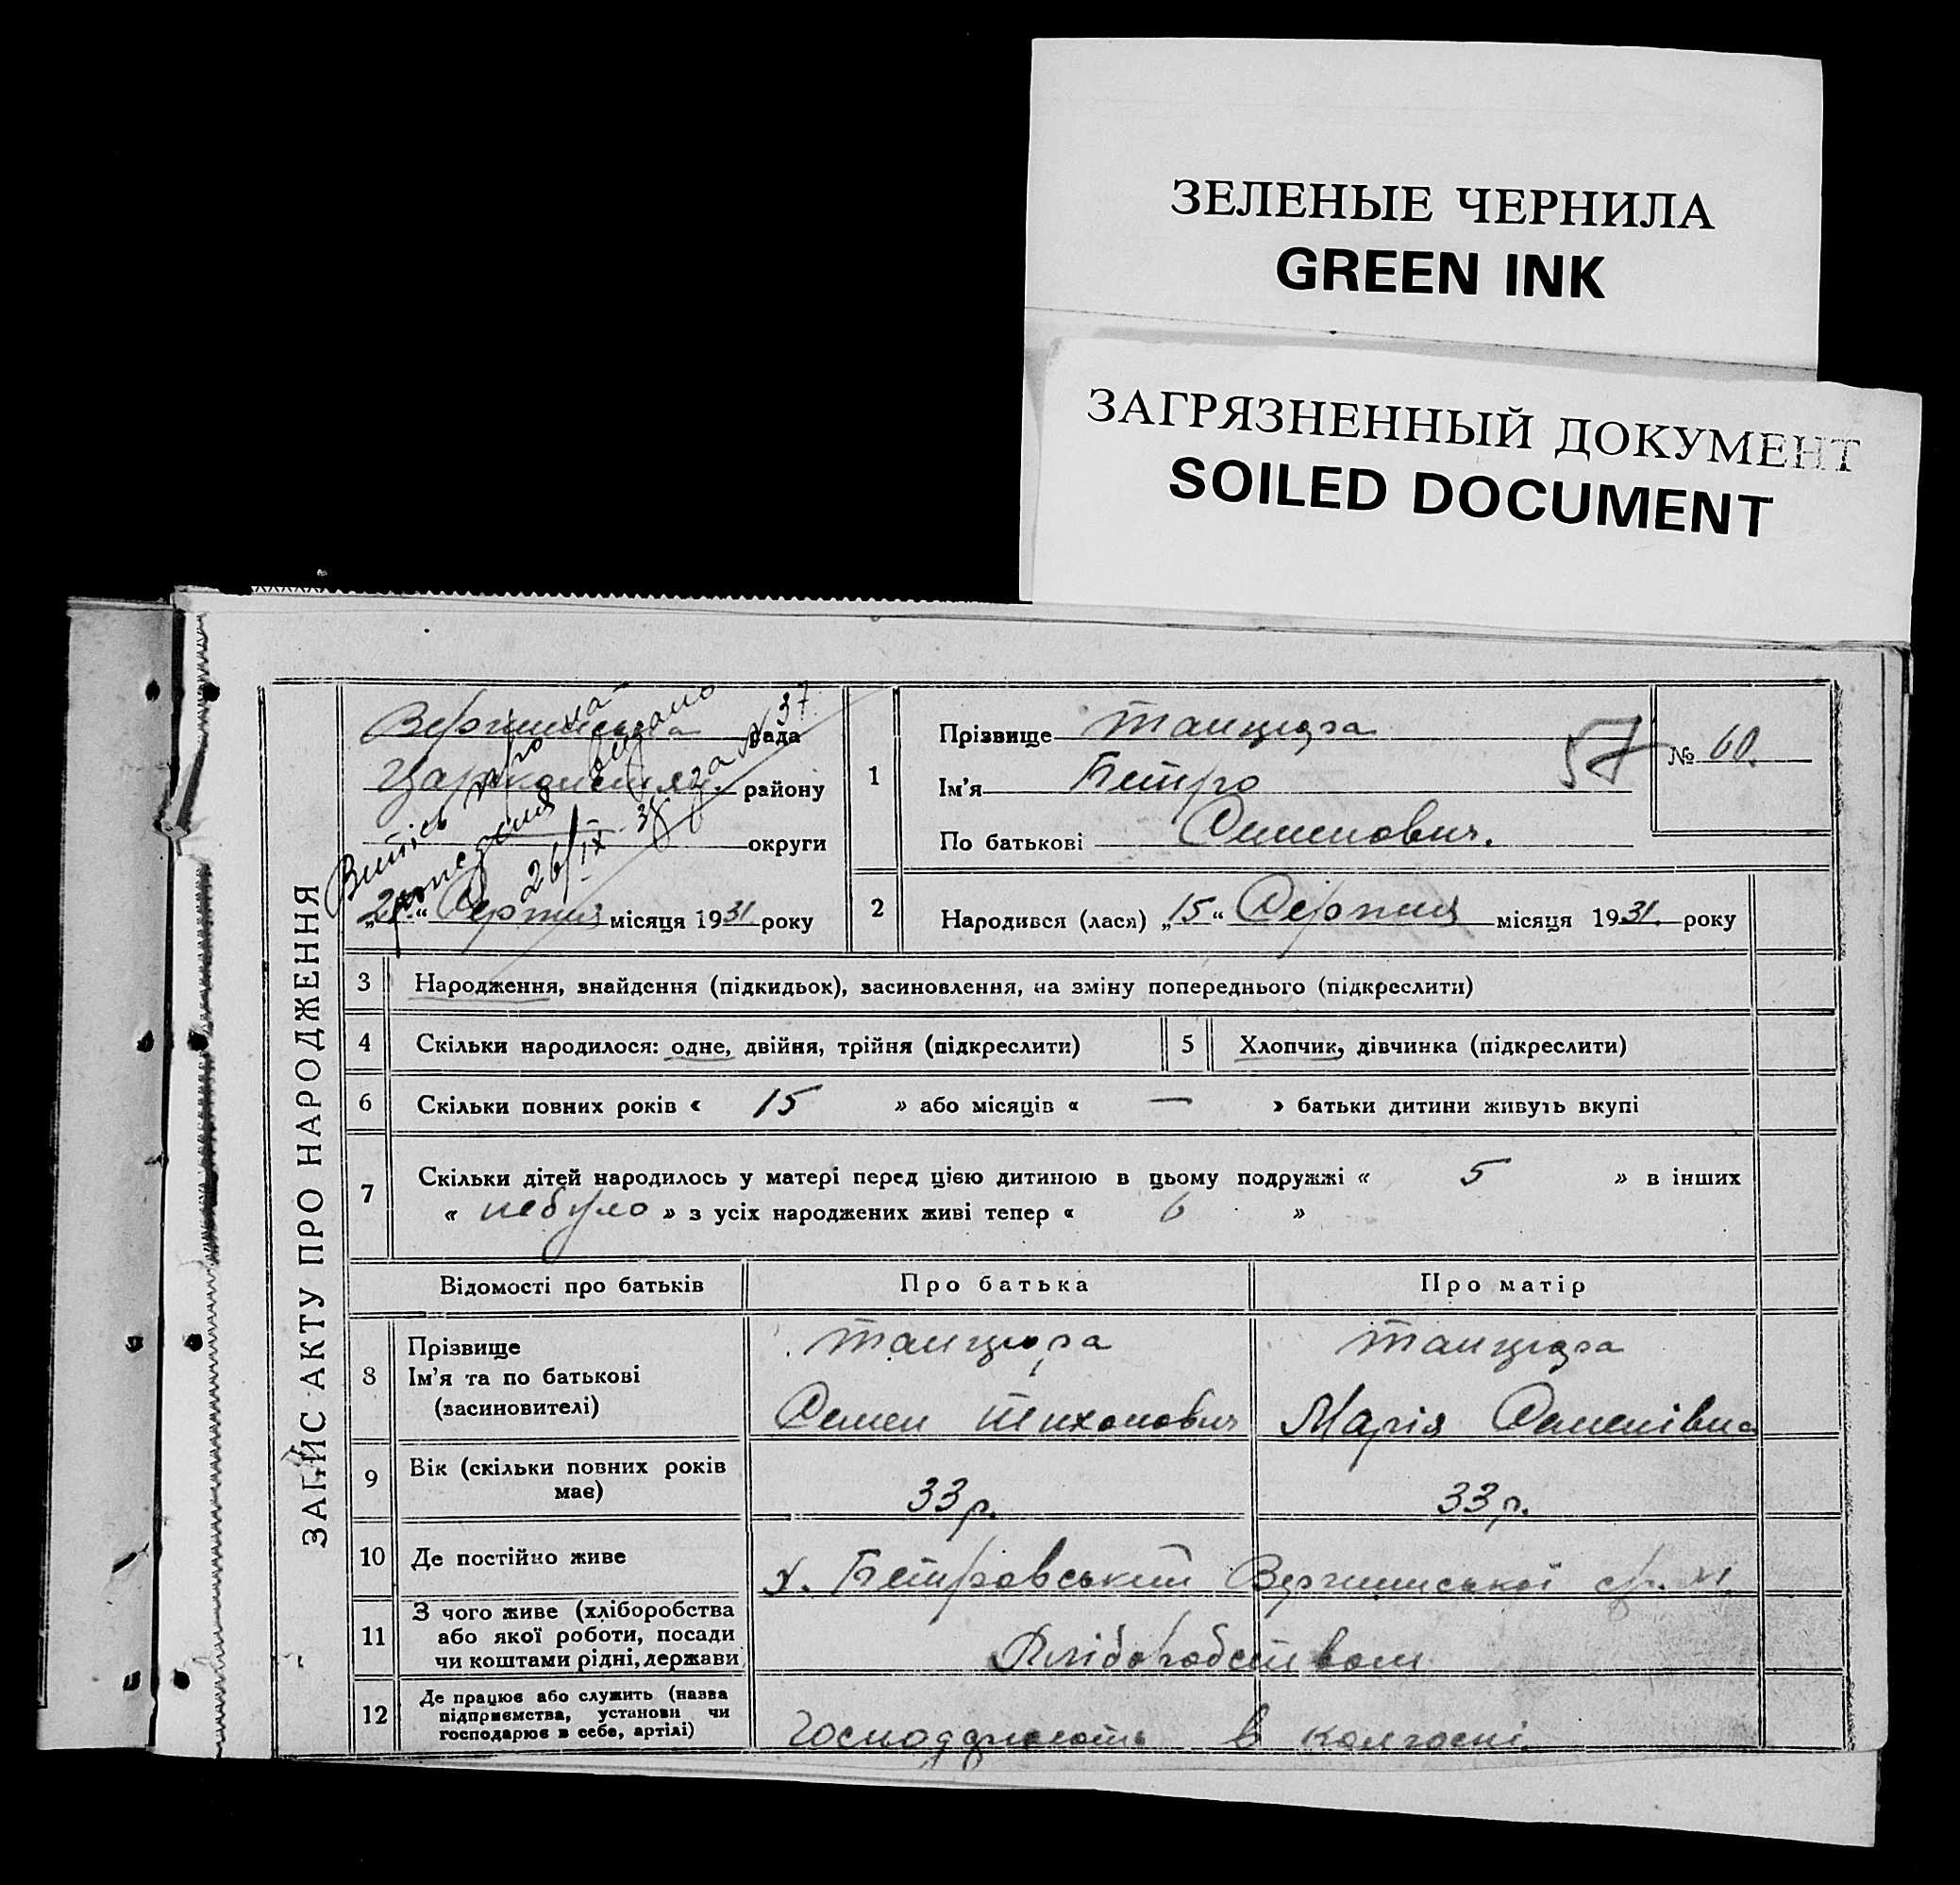 ЗЕЛЕНЫЕ ЧЕРНИЛА
GREEN INK
ЗАГРЯЗНЕННЫЙ ДОКУМЕНТ
SOILED DOCUMENT
ЗАПИС АКТУ ПРО НАРОДЖЕННЯ
рада
району
округи
Серпня місяця 1931 року
Витяг про на-
родження видано
26/IX 38 за № 37
1
Прізвище Танцюра
Ім'я Петро
По батькові Семенович.
57
№ 60.
2 Народився (лася) „15“ Серпня місяця 1931. року
3 Народження, знайдення (підкидьок), засиновлення, на зміну попереднього (підкреслити)
4 Скільки народилося: одне, двійня, трійня (підкреслити)
5 Хлопчик, дівчинка (підкреслити)
6 Скільки повних років « 15 » або місяців « — » батьки дитини живуть вкупі
7 Скільки дітей народилось у матері перед цією дитиною в цьому подружжі « 5 » в інших
« небуло » з усіх народжених живі тепер « 6 »
Відомості про батьків Про батька Про матір
8 Прізвище
Ім'я та по батькові
(засиновителі)
Танцюра
Семен Тихонович
Танцюра
Марія Семенівна
9 Вік (скільки повних років
має)
33 р. 33 р.
10 Де постійно живе х. Петровський
11 З чого живе (хліборобства
або якої роботи, посади
чи коштами рідні, держави
Хліборобством
12 Де працює або служить (назва
підприємства, установи чи
господарює в себе, артілі)
Господарюють в колгоспі.